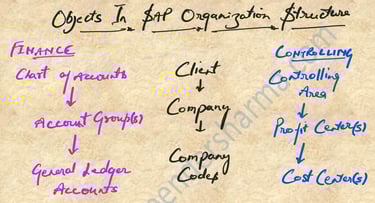 Objects In SAP Organization Structure
FINANCE
Chart of Accounts
Account Group(s)
General Ledger
Accounts
Client
Company
Company
Codes
CONTROLLING
Controlling
Area
Profit Center(s)
Cost Center(s)